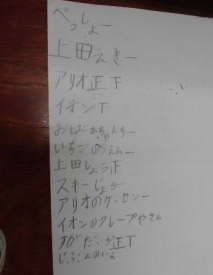 べっしょー
上田えきー
アリオ正下
イオン下
おばあちゃんちー
いちごのえんー
上田じょう正
スキーじょう
アリオのゲーセンー
イオンのクレープやさん
すがだいら正下